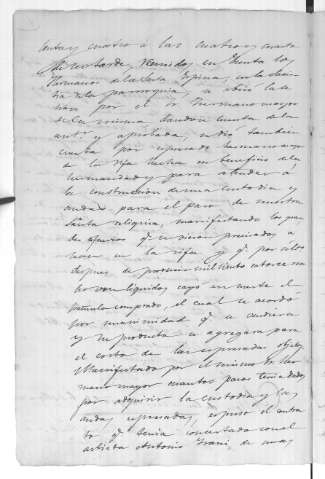 enta y cuatro a las cuatro y cuarta
de su tarde, reunidos en Junta los
Hermanos de la Santa Espina, en la Sacris
tia de la parroquia, se abrió la se
sion por el Sr. Hermano mayor
de la misma dandose cuenta de la
ant.r y aprobada, se dio tambien
cuenta por espresado hermano mayor
de la rifa hecha en beneficio de la
hermandad y para atender á
la construccion de una custodia y
andas para el paso de nuestra
Santa reliquia, manifestando los gran
des esfuerzos q.e se vieron precisados a
hacer en la rifa y q.e por sólo
despues de producir mil ciento catorce rea
les von liquidos, cayó en suerte el
pañuelo comprado, el cual se acordó
por unanimidad q.e se vendiera
y su producto se agregara para
el costo de los espresados objetos
Manifestado por el mismo Sr. her
mano mayor cuantos pasos tenia dados
por adquirir la custodia y las
andas espresadas, espuso el contra
to q.e tenia concertado con el
artista Antonio de mas